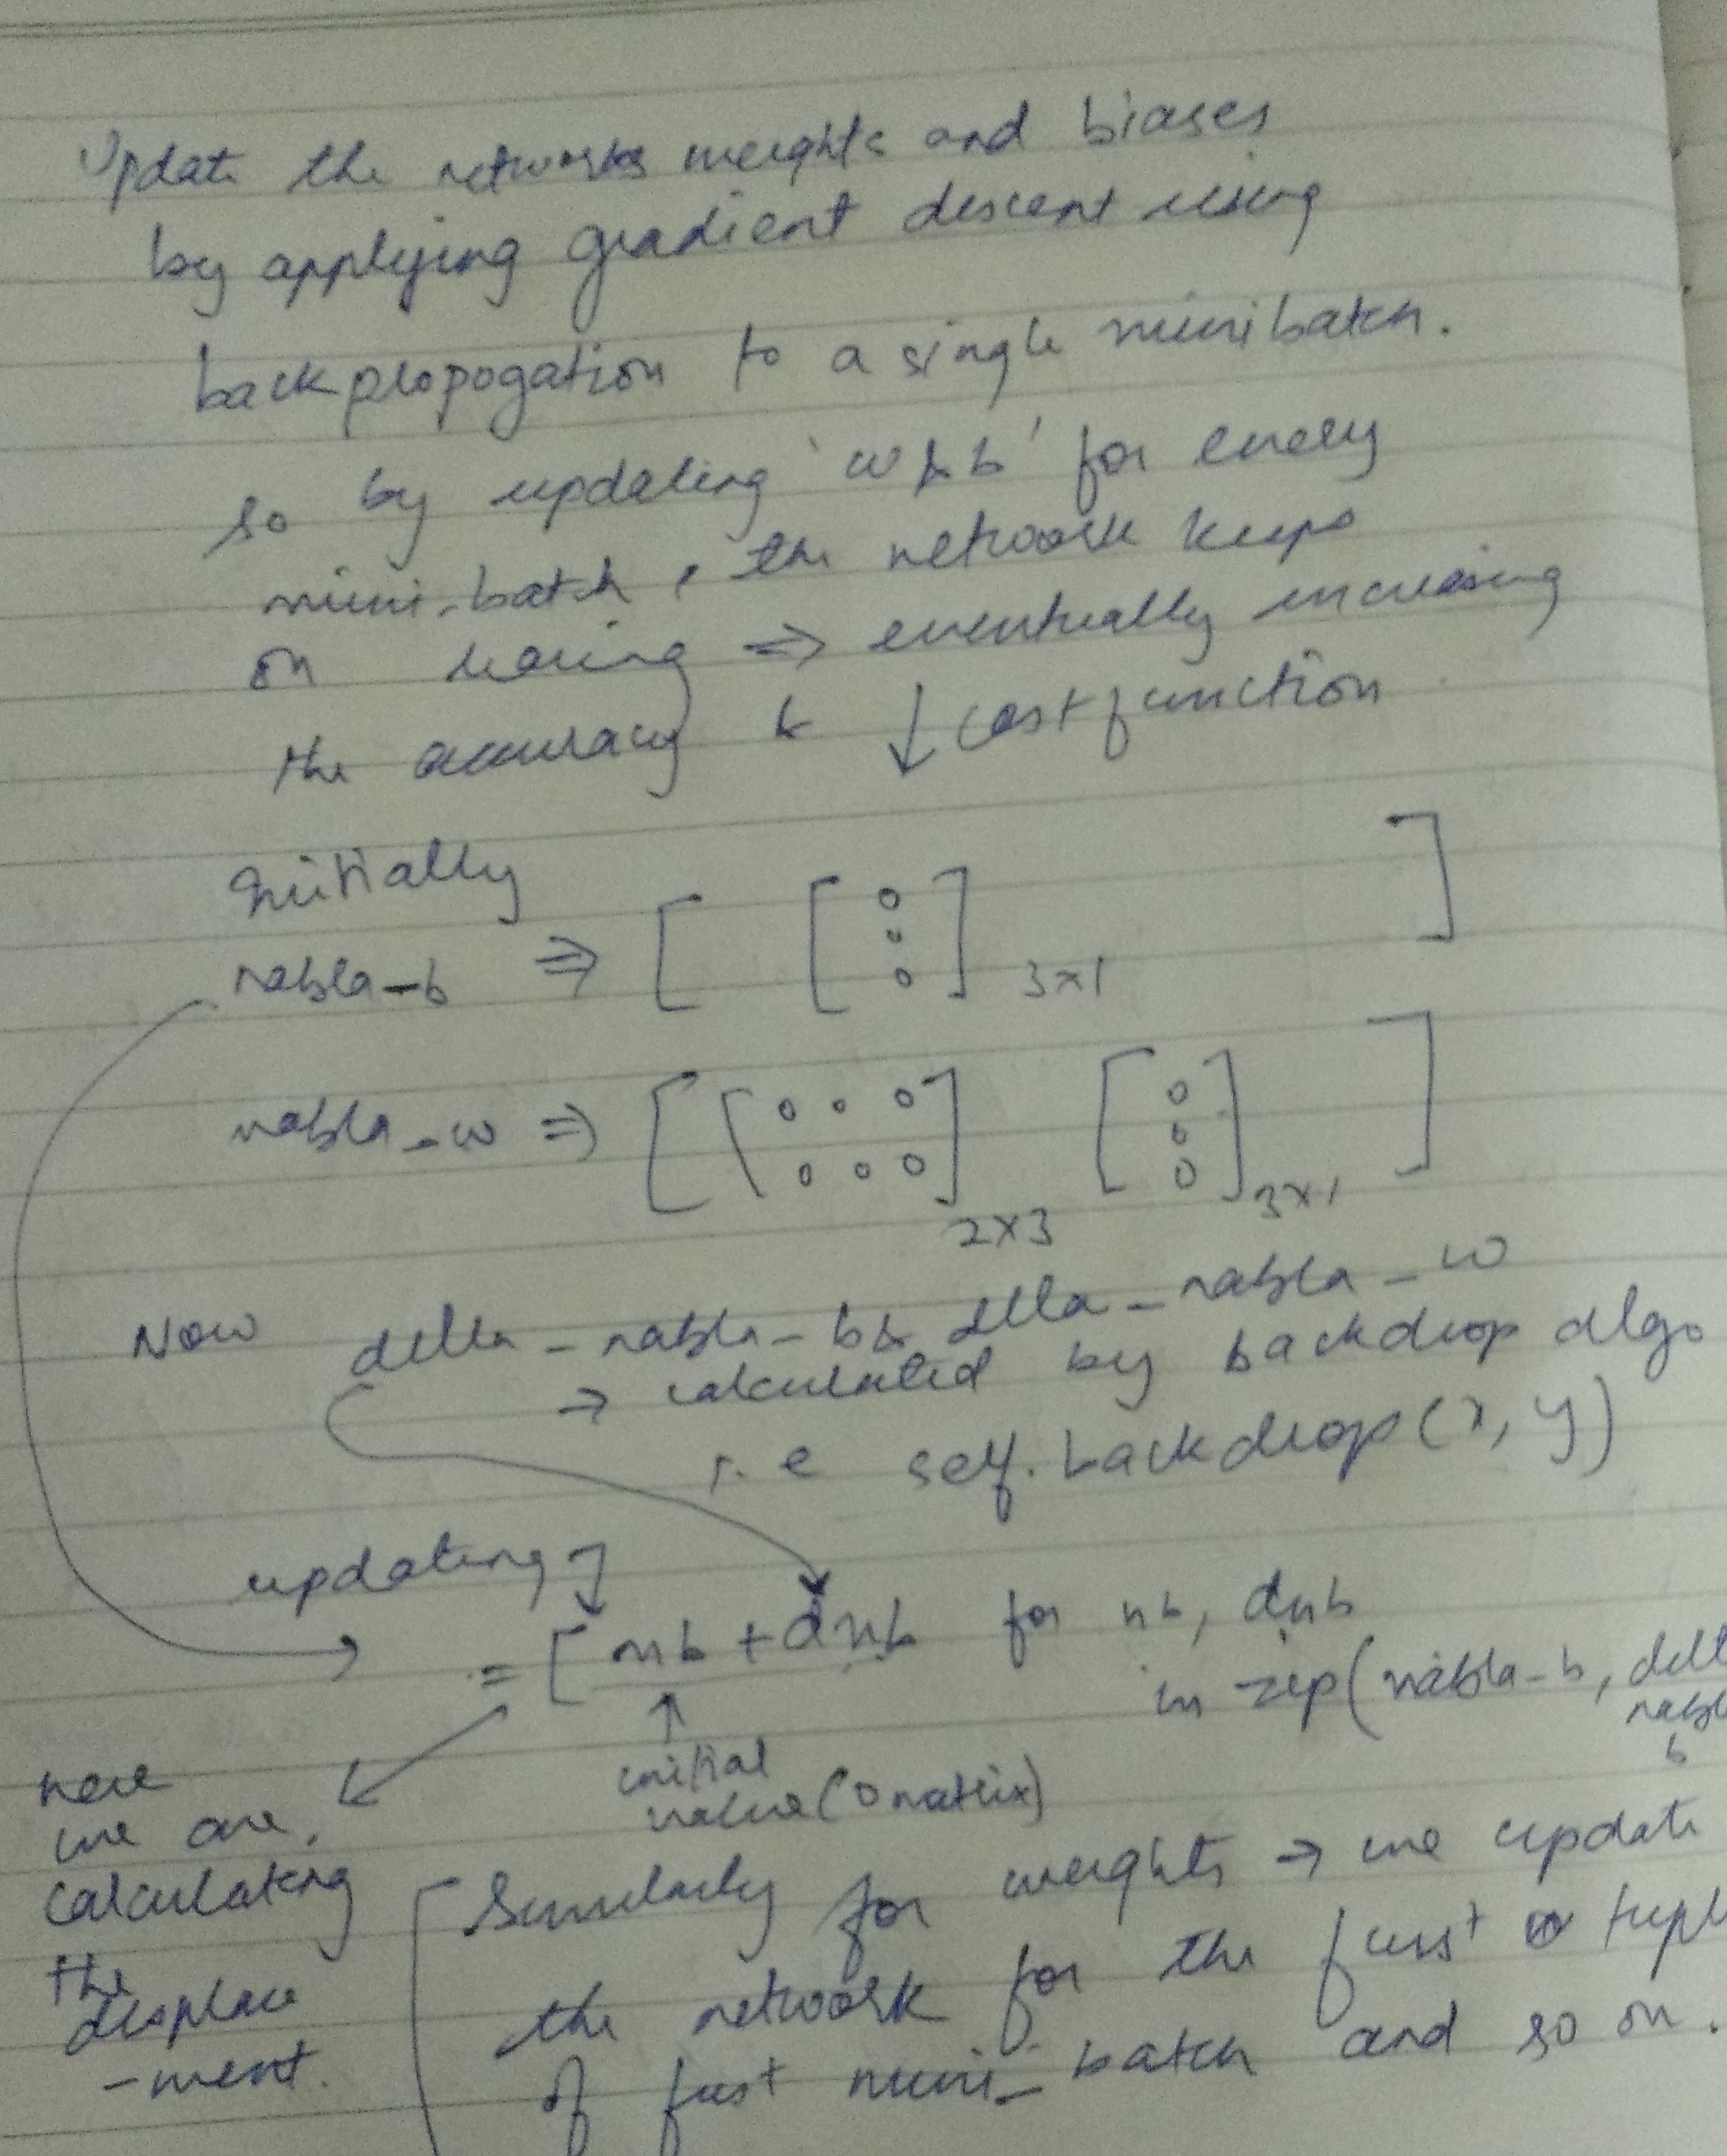 Update the networks weights and biases
by applying gradient descent using
backpropogation to a single minibatch.
so by updating 'w & b' for every
mini-batch, the network keeps
on ⇒ eventually increasing
the accuracy & ↓ cost function
Initially
nabla_b ⇒ [ [ 0 0 0 ] 3x1 ]
nabla_w ⇒ [ [ 0 0 0
0 0 0 ] 2x3 [ 0 0 0 ] 3x1 ]
Now delta_nabla_b & delta_nabla_w
→ calculated by backdrop algo
i.e self.backdrop(x, y)
updating
= [ nb + dnb for nb, dnb
in zip(nabla_b, delt
nabl
b
↑
initial
value (0 matrix)
here
we are
calculating
the
displace
-ment.
Similarly for weights → we update
the network for the first tupl
of first mini_batch and so on.